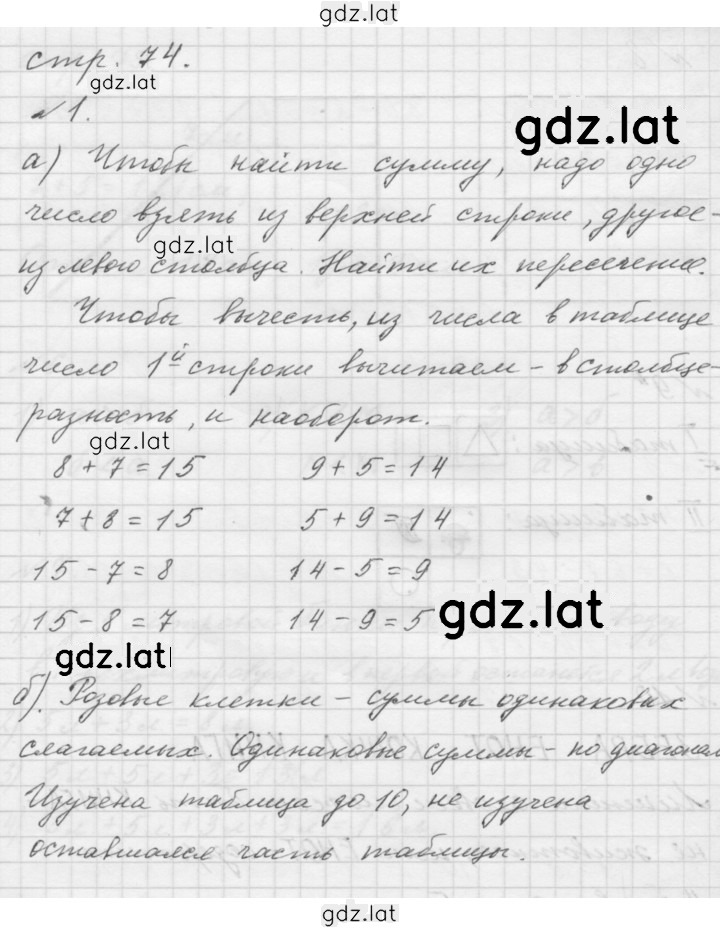 gdz.lat
стр. 74.
gdz.lat
№1.
gdz.lat
а) Чтобы найти сумму, надо одно
число взять из верхней строки, другое-
gdz.lat
из левого столбца. Найти их пересечение.
Чтобы вычесть, из числа в таблице
число 1й строки вычитаем - в столбце-
разность, и наоборот.
gdz.lat
8 + 7 = 15 9 + 5 = 14
7 + 8 = 15 5 + 9 = 14
15 - 7 = 8 14 - 5 = 9
15 - 8 = 7 14 - 9 = 5
gdz.lat
gdz.lat
б). Розовые клетки - суммы одинаковых
слагаемых. Одинаковые суммы - по диагонал
Изучена таблица до 10, не изучена
оставшаяся часть таблицы.
gdz.lat